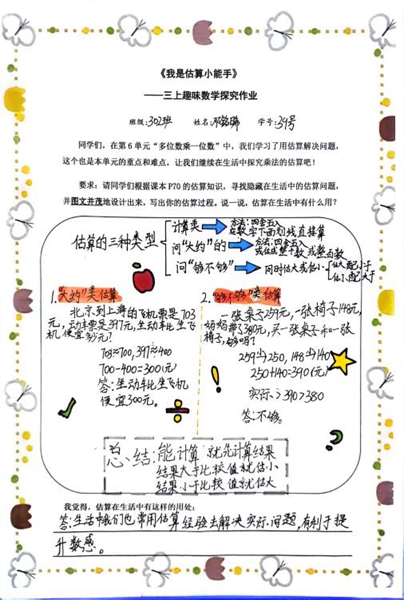 《我是估算小能手》
——三上趣味数学探究作业
班级:302班 姓名: 学号:34号
同学们，在第6单元“多位数乘一位数”中，我们学习了用估算解决问题，
这个也是本单元的重点和难点，让我们继续在生活中探究乘法的估算吧！
要求：请同学们根据课本P70的估算知识，寻找隐藏在生活中的估算问题，
并图文并茂地设计出来，写出你的估算过程，说一说，估算在生活中有什么用？
估算的三种类型
计算类
方法:四舍五入
在数字下面划线直接算
问“大约”的
方法:四舍五入
或估成整十数或整百数
问“够不够”
同时估大或估小
1.“大约”类估算
北京到上海的飞机票是703
元,动车票是397元,坐动车比坐飞
机便宜多少元?
703≈700,397≈400
700-400=300(元)
答:坐动车比坐飞机
便宜300元。
2.“够不够”类估算
一张桌子259元,一张椅子148元,
妈妈带了380元,买一张桌子和一张
椅子,够吗?
259≈250,148≈140
250+140=390(元)
实际>390>380
答:不够。
总结:能计算 就先计算结果
结果大于比较值就估小
结果小于比较值就估大
我觉得，估算在生活中有这样的用处：
答:生活中我们也常用估算经验去解决实际问题,有利于提
升数感。